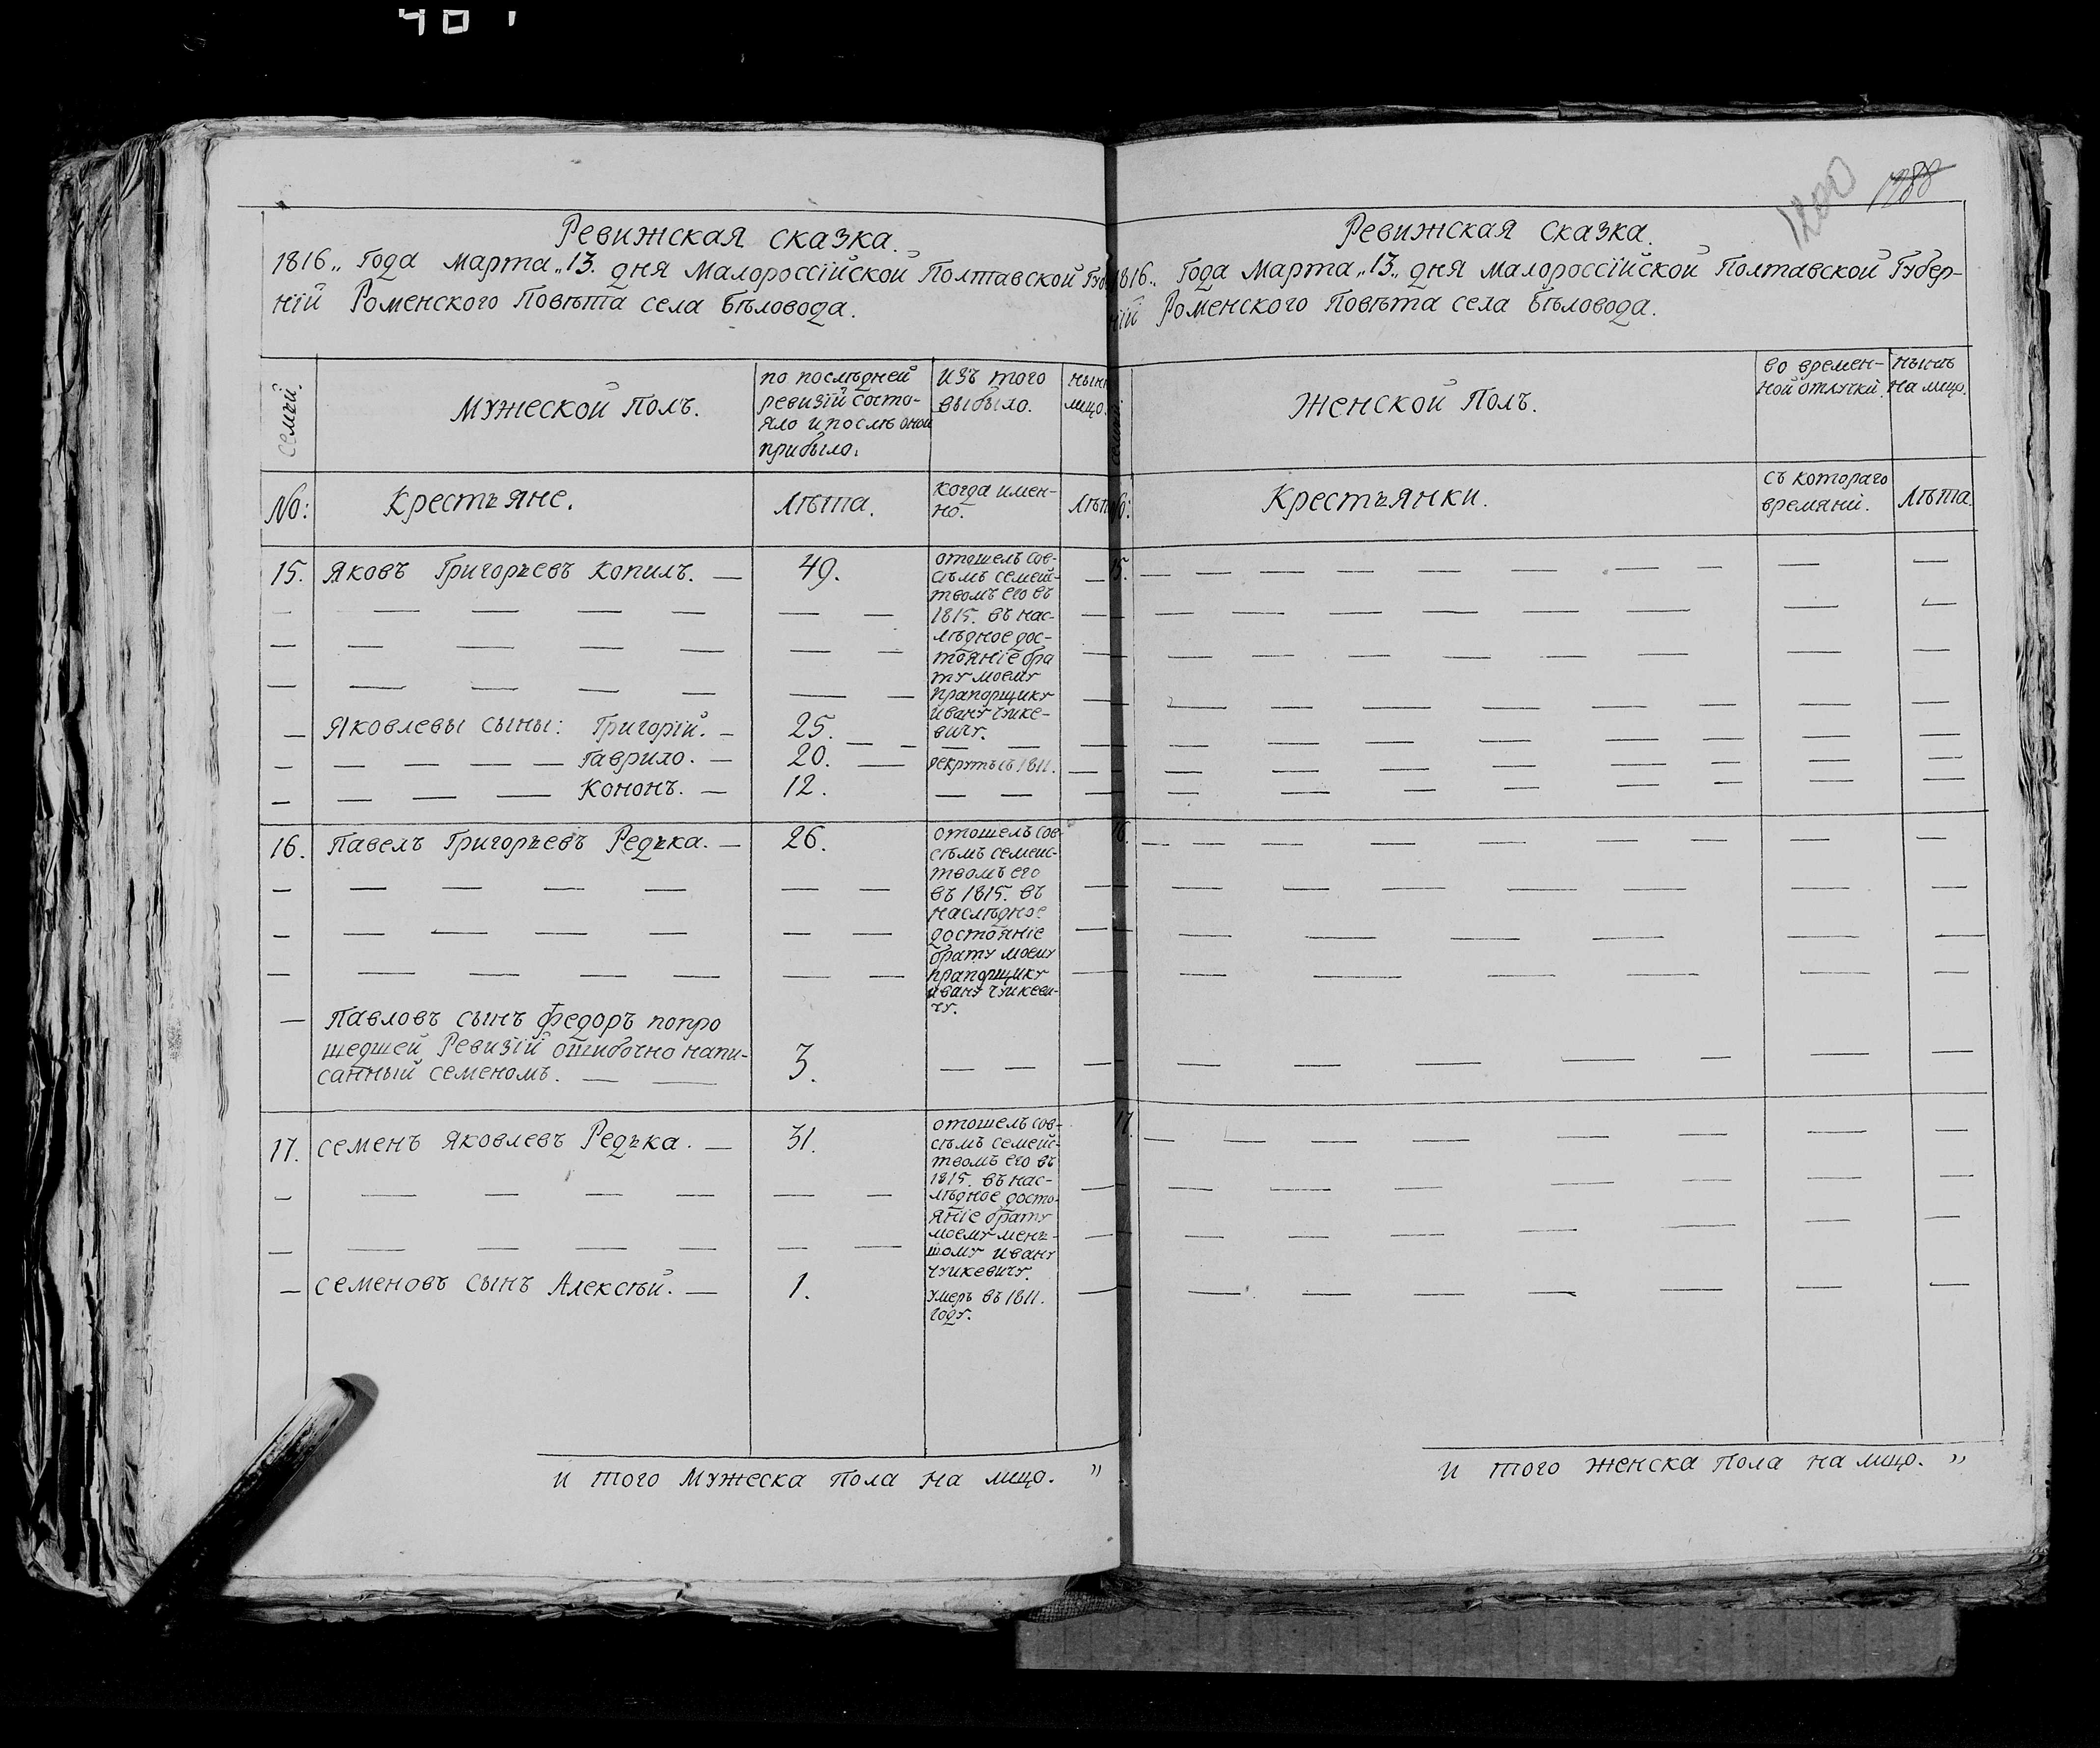 1200 1288
Ревижская сказка.
1816„ Года Марта „13. дня Малороссїйской Полтавской Губ
нїй Роменского Повѣта села Бѣловода.
семьи.
Мужеской Полъ.
по послѣдней
ревизїй состо-
яло и послѣ оной
прибыло.
изъ того
выбыло.
нынѣ
лицо.
No:
Крестьяне.
Лѣта.
когда имен-
но.
Лѣта
15. Яковъ Григорьевъ Копилъ. — 49.
отошелъ сов-
сѣмъ семейс-
твомъ его въ
1815. въ нас-
лѣдное дос-
тоянїе бра
ту моему
прапорщику
Ивану Чуйке-
вичу.
— Яковлевы сыны: Григорїй. — 25. — —
— — — — — — Гаврило. — 20. — рекрутъ съ 1811.
— — — — Кононъ. — 12. — —
16. Павелъ Григорьевъ Редька. — 26.
отошелъ сов-
сѣмъ семейс-
твомъ его
въ 1815. въ
наслѣдное
достоянїе
брату моему
прапорщику
Ивану Чуйкеви-
чу.
— Павловъ сынъ Федоръ попро
шедшей Ревизїй ошибочно напи-
санный семеномъ. — — 3. — —
17. семенъ Яковлевъ Редька. — 31.
отошелъ сов-
сѣмъ семейс-
твомъ его въ
1815. въ нас-
лѣдное досто-
янїе брату
моему мень-
шому Ивану
Чуйкевичу.
— семеновъ сынъ Алексѣй. — 1.
умеръ въ 1811.
году.
и того Мужеска пола на лицо. „
Ревижская сказка.
1816„ Года Марта „13„ дня Малороссїйской Полтавской Губер-
нїй Роменского Повѣта села Бѣловода.
Женской Полъ.
во времен-
ной отлучки.
нынѣ
на лицо.
No:
Крестьянки.
съ котораго
времяни.
Лѣта.
15.
16.
17.
и того женска пола на лицо. „